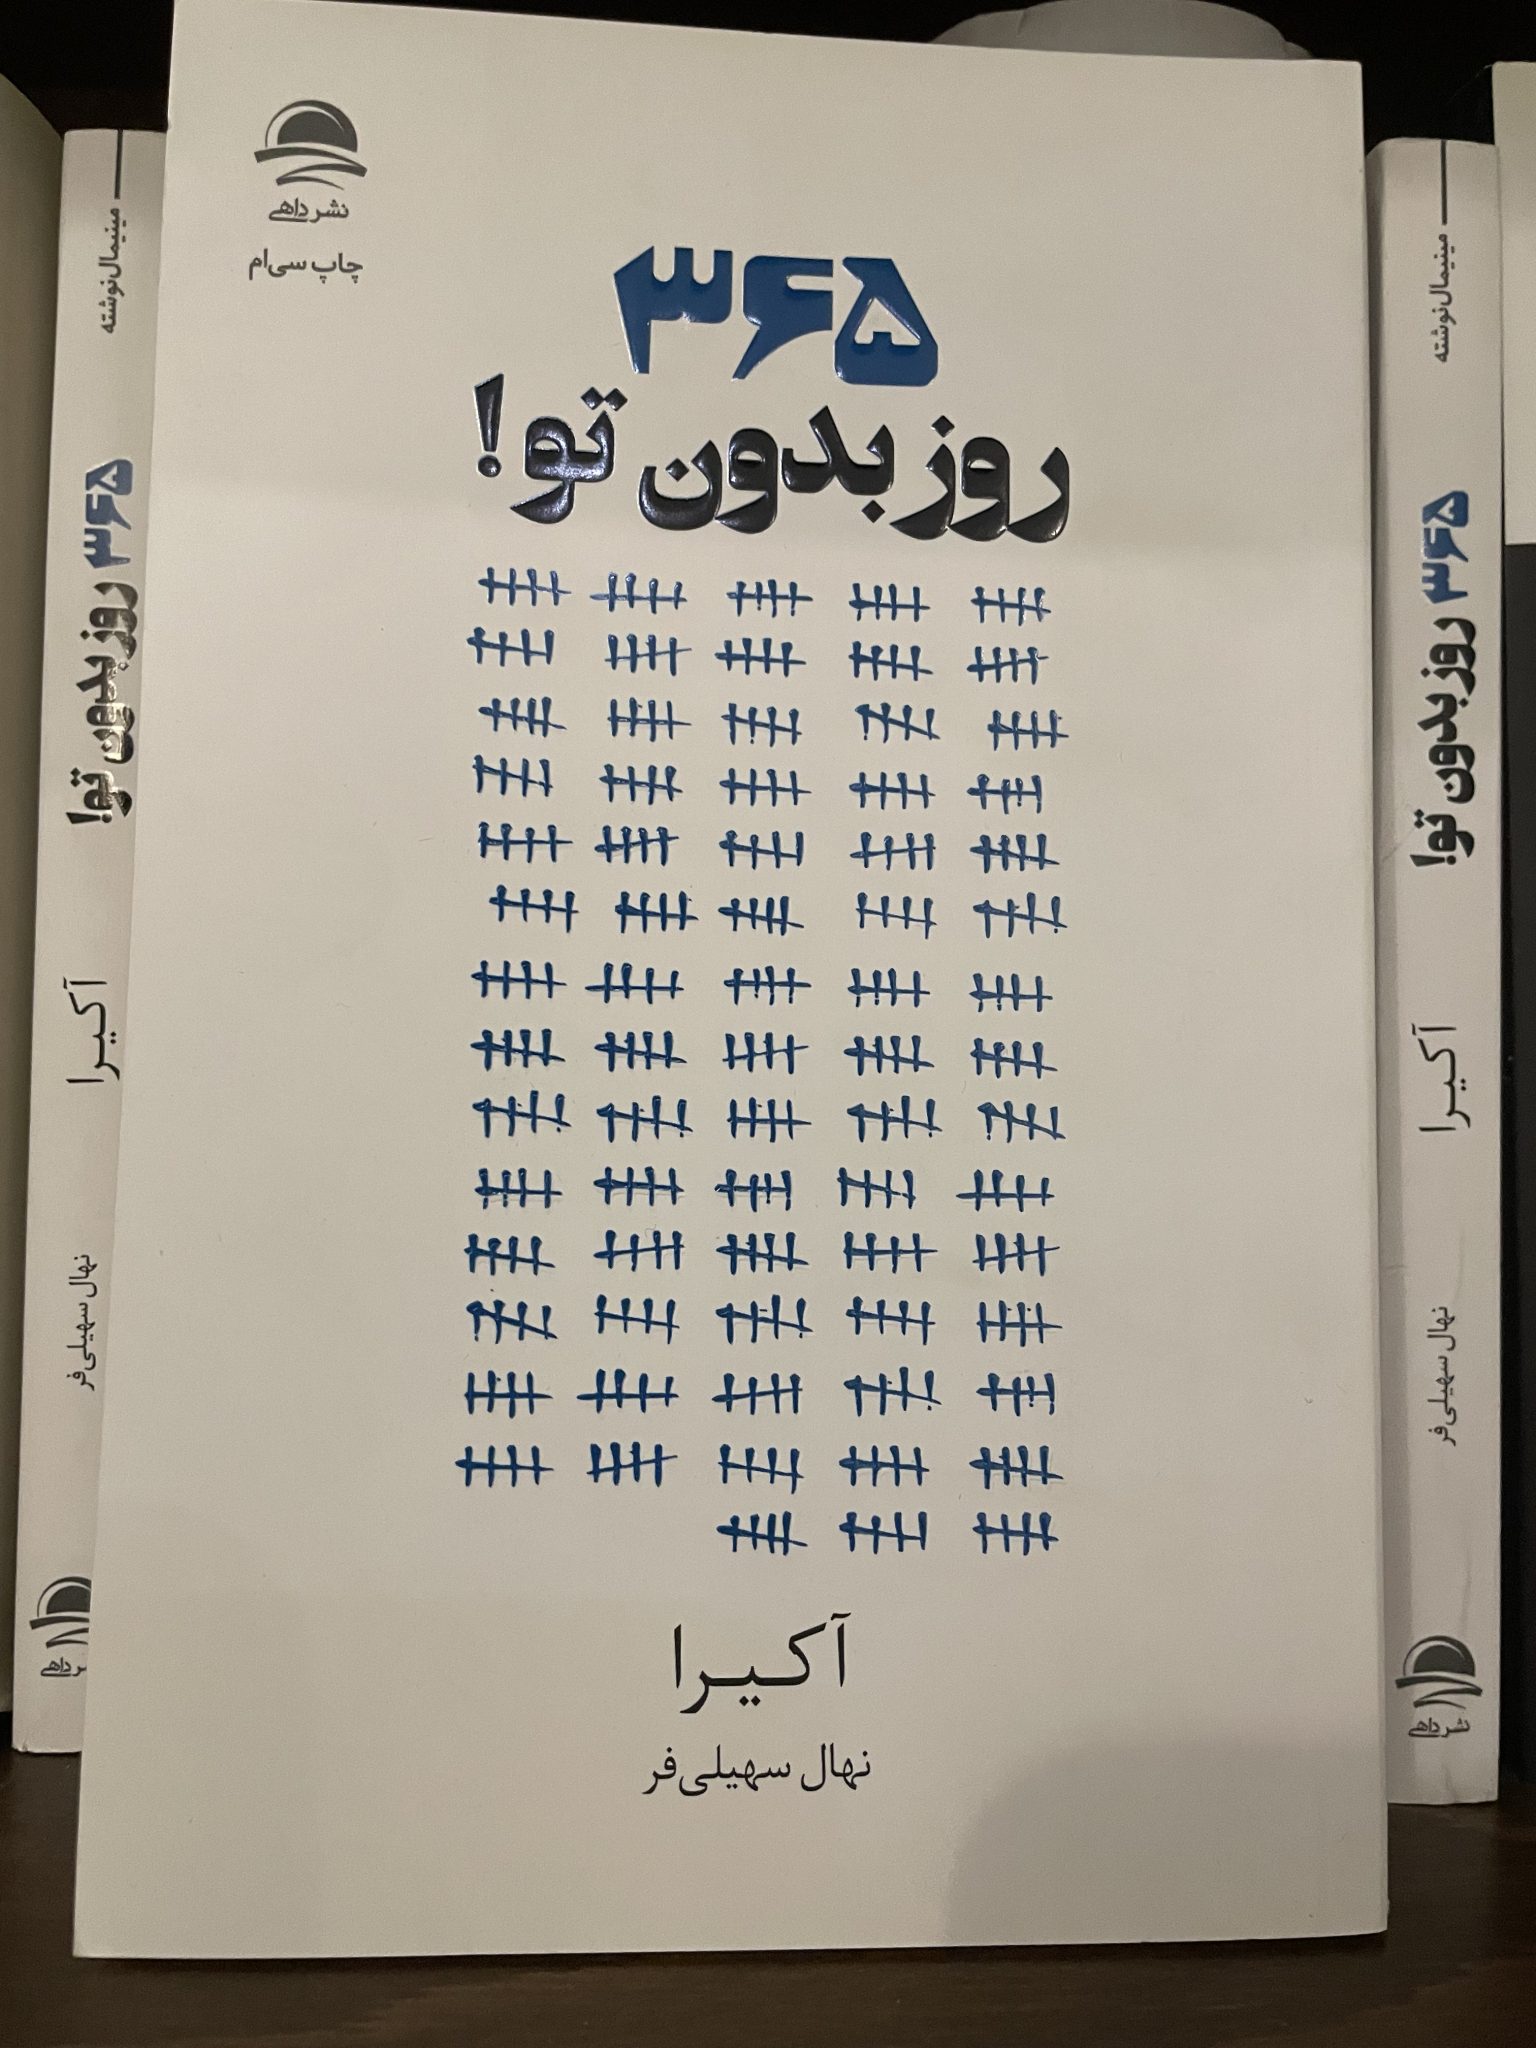 نشر داهی
چاپ سی‌ام
۳۶۵
روز بدون تو!
آکیرا
نهال سهیلی‌فر
مینیمال‌نوشته
۳۶۵ روز بدون تو!
آکیرا
نهال سهیلی‌فر
مینیمال‌نوشته
۳۶۵ روز بدون تو!
آکیرا
نهال سهیلی‌فر
نشر داهی